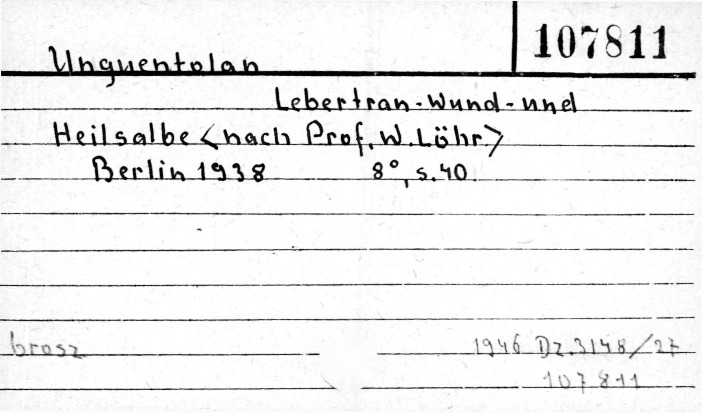 107811
Unguentolan
Lebertran-Wund-und
Heilsalbe <nach Prof. W. Löhr>
Berlin 1938 8°, s. 40
brosz
1946 Dz. 3148/27
107811